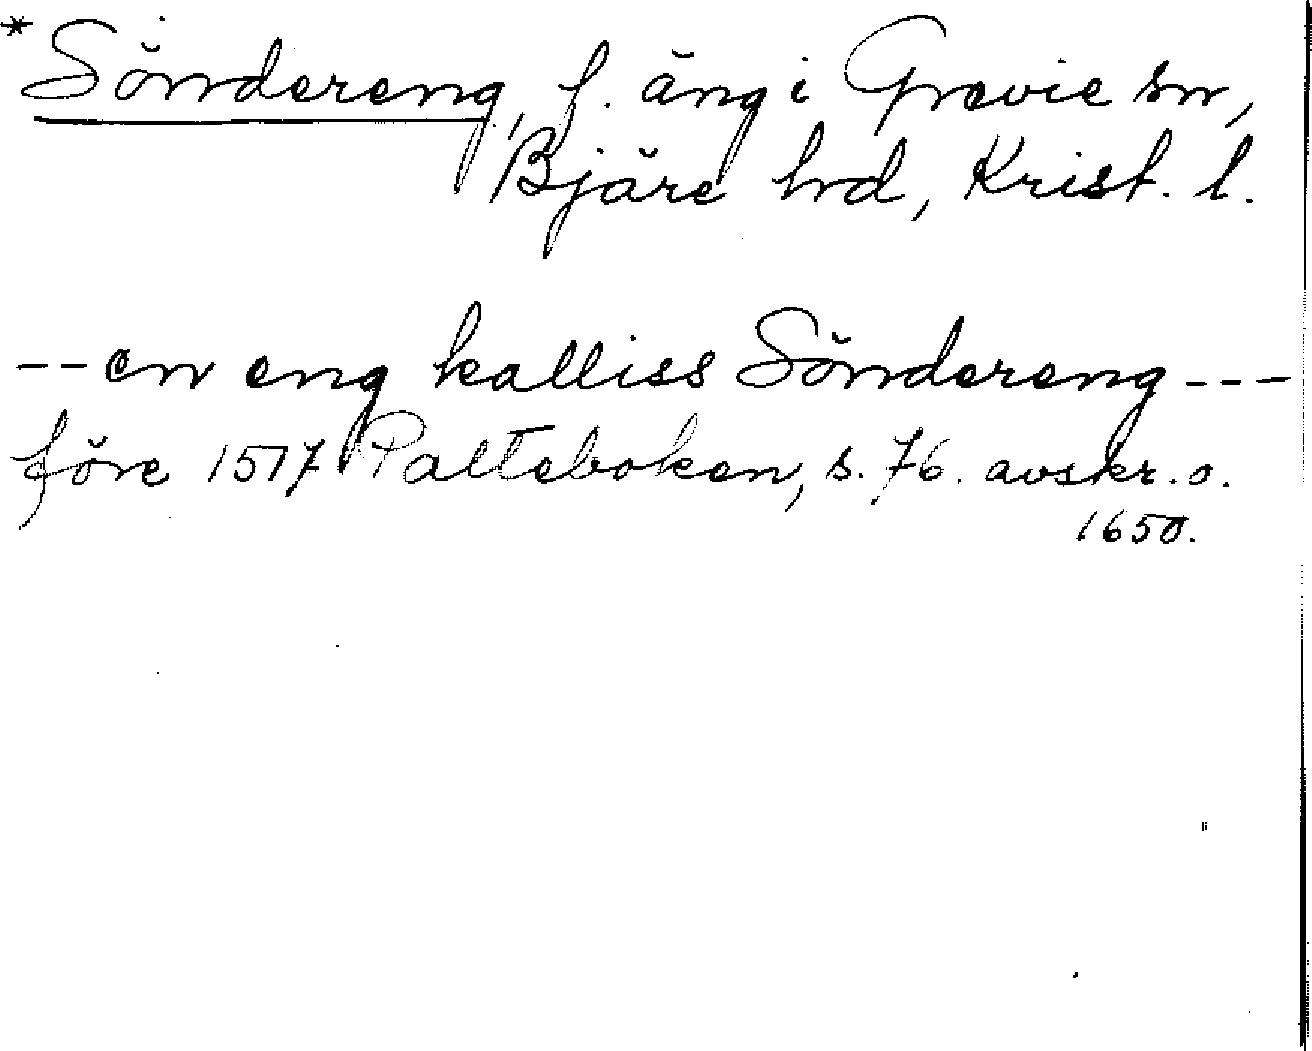 *Söndereng, f. äng i Grevie sn,
Bjäre hd, Krist. l.
-- en eng kalliss Söndereng ---
före 1517 Palteboken, s. 76. avskr. o.
1650.